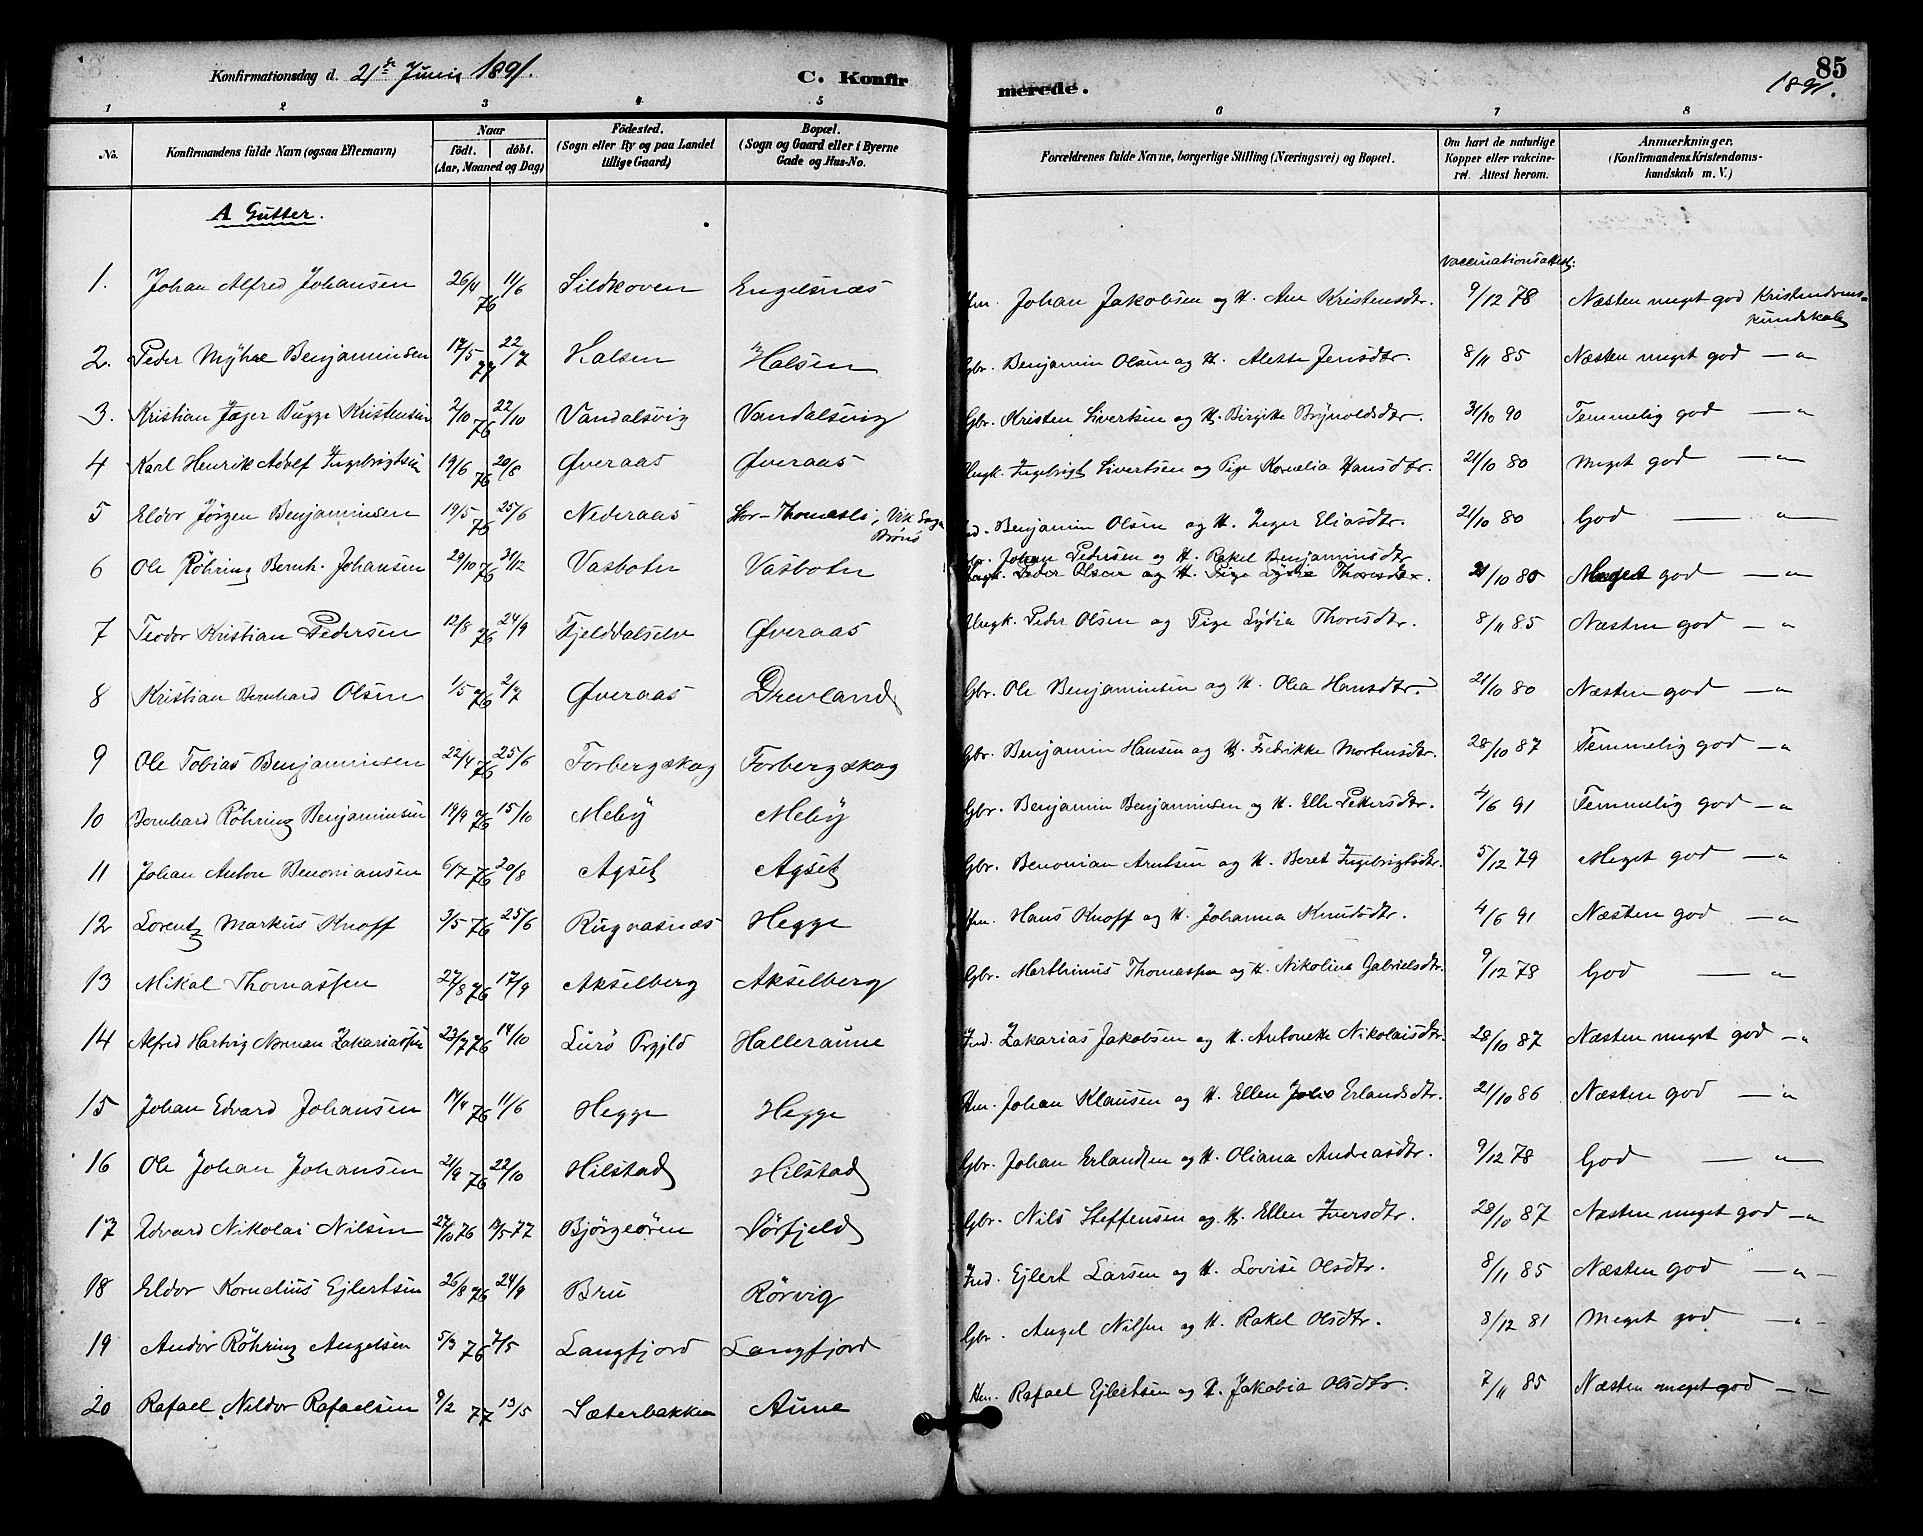 85
Konfirmationsdag d. 21de Juni 1891. C. Konfirmerede. 1891.
1 2 3 4 5 6 7 8
No. Konfirmandens fulde Navn (ogsaa Efternavn) Naar født. døbt. (Aar, Maaned og Dag) Födested. (Sogn eller By og paa Landet tillige Gaard) Bopæl. (Sogn og Gaard eller i Byerne Gade og Hus-No. Forældrenes fulde Navne, borgerlige Stilling (Næringsvei) og Bopæl. Om havt de naturlige Kopper eller vakcineret. Attest herom. Anmærkninger. (Konfirmandens Kristendomskundskab m. V.)
A Gutter.
Vaccinationsattest:
1. Johan Alfred Johansen 26/4 76 11/6 Sildhoven Engelsnæs Hm. Johan Jakobsen og H. Ane Kristensdtr. 9/12 78 Næsten meget god Kristendomskundskab
2. Peder Myhre Benjaminsen 17/5 77 22/7 Halsen Halsen Gbr. Benjamin Olsen og H. Alette Jensdtr. 8/11 85 Næsten meget god — "
3. Kristian Jæger Bugge Kristensen 2/10 76 22/10 Vandalsvig Vandalsvig Gbr. Kristen Sivertsen og H. Birgitte Brynoldsdtr. 31/10 90 Temmelig god — "
4 Karl Henrik Adolf Ingebrigtsen 19/6 76 20/8 Øveraas Øveraas Ungk. Ingebrigt Sivertsen og Pige Kornelia Hansdtr. 21/10 80 Meget god — "
5 Eldor Jörgen Benjaminsen 19/5 76 25/6 Nederaas Stor-Thomasli, Vik Sogn Brönö Ind. Benjamin Olsen og H. Inger Eliasdtr. 21/10 80 God — "
6 Ole Röhring Bernh. Johansen 29/10 76 31/12 Vasbotn Vasbotn Gbr. Johan Pedersen og H. Rakel Benjaminsdtr
Ungk. Peder Olsen og H. Pige Lydia Thoresdtr. 21/10 80 Meget god — "
7 Teodor Kristian Pedersen 12/8 76 24/9 Fjelddalselv Øveraas Ungk. Peder Olsen og Pige Lydia Thoresdtr. 8/11 85 Næsten god — "
8 Kristian Bernhard Olsen 1/5 76 2/7 Øveraas Drevland Gbr. Ole Benjaminsen og H. Olea Hansdtr. 21/10 80 Næsten god — "
9 Ole Tobias Benjaminsen 22/4 76 25/6 Forbergskog Forbergskog Gbr. Benjamin Hansen og H. Fredrikke Mortensdtr. 28/10 87 Temmelig god — "
10 Bernhard Röhring Benjaminsen 19/9 76 15/10 Meby Meby Gbr. Benjamin Benjaminsen og H. Elle Pettersdtr. 4/6 91 Temmelig god — "
11 Johan Anton Benoniansen 6/7 76 20/8 Agset Agset Gbr. Benonian Arntsen og H. Beret Ingebrigtsdtr. 5/12 79 Meget god — "
12 Lorentz Markus Knoff 3/5 76 25/6 Rugvasnæs Hegge Hm. Hans Knoff og H. Johanna Knudsdtr. 4/6 91 Næsten god — "
13 Mikal Thomassen 27/8 76 17/9 Akselberg Akselberg Gbr. Marthinus Thomassen og H. Nikolina Gabrielsdtr. 9/12 78 God — "
14 Alfred Hartvig Norman Zakariassen 23/7 76 14/10 Lurö Prgjld Halleraune Ind. Zakarias Jakobsen og H. Antonette Nikolaisdtr. 28/10 87 Næsten meget god — "
15 Johan Edvard Johansen 14/4 76 11/6 Hegge Hegge Hm. Johan Klausen og H. Ellen Erlandsdtr. 21/10 86 Næsten god — "
16 Ole Johan Johansen 2/9 76 22/10 Hilstad Hilstad Gbr. Johan Erlandsen og H. Oliana Andreasdtr. 9/12 78 God — "
17 Edvard Nikolai Nilsen 27/10 76 13/5 77 Bjørgeören Sörfjeld Gbr. Nils Steffensen og H. Ellen Iversdtr. 28/10 87 Næsten meget god — "
18 Eldor Kornelius Ejlertsen 26/8 76 24/9 Bru Rörvig Ind. Ejlert Larsen og H. Lovise Olsdtr. 8/11 85 Næsten god — "
19 Andor Röhring Angelsen 5/3 76 7/5 Langfjord Langfjord Gbr. Angel Nilsen og H. Rakel Olsdtr. 8/12 81 Meget god — "
20 Rafael Nildor Rafaelsen 9/2 77 13/5 Sæterbakken Aune Hm. Rafael Ejlertsen og H. Jakobia Olsdtr. 7/11 85 Næsten meget god — "